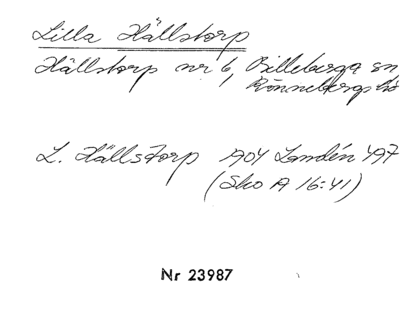 Lilla Hällstorp
Hällstorp nr 6, Billeberga sn
Rönnebergs hd
L. Hällstorp 1904 Landén 497
(Sko A 16:41)
Nr 23987